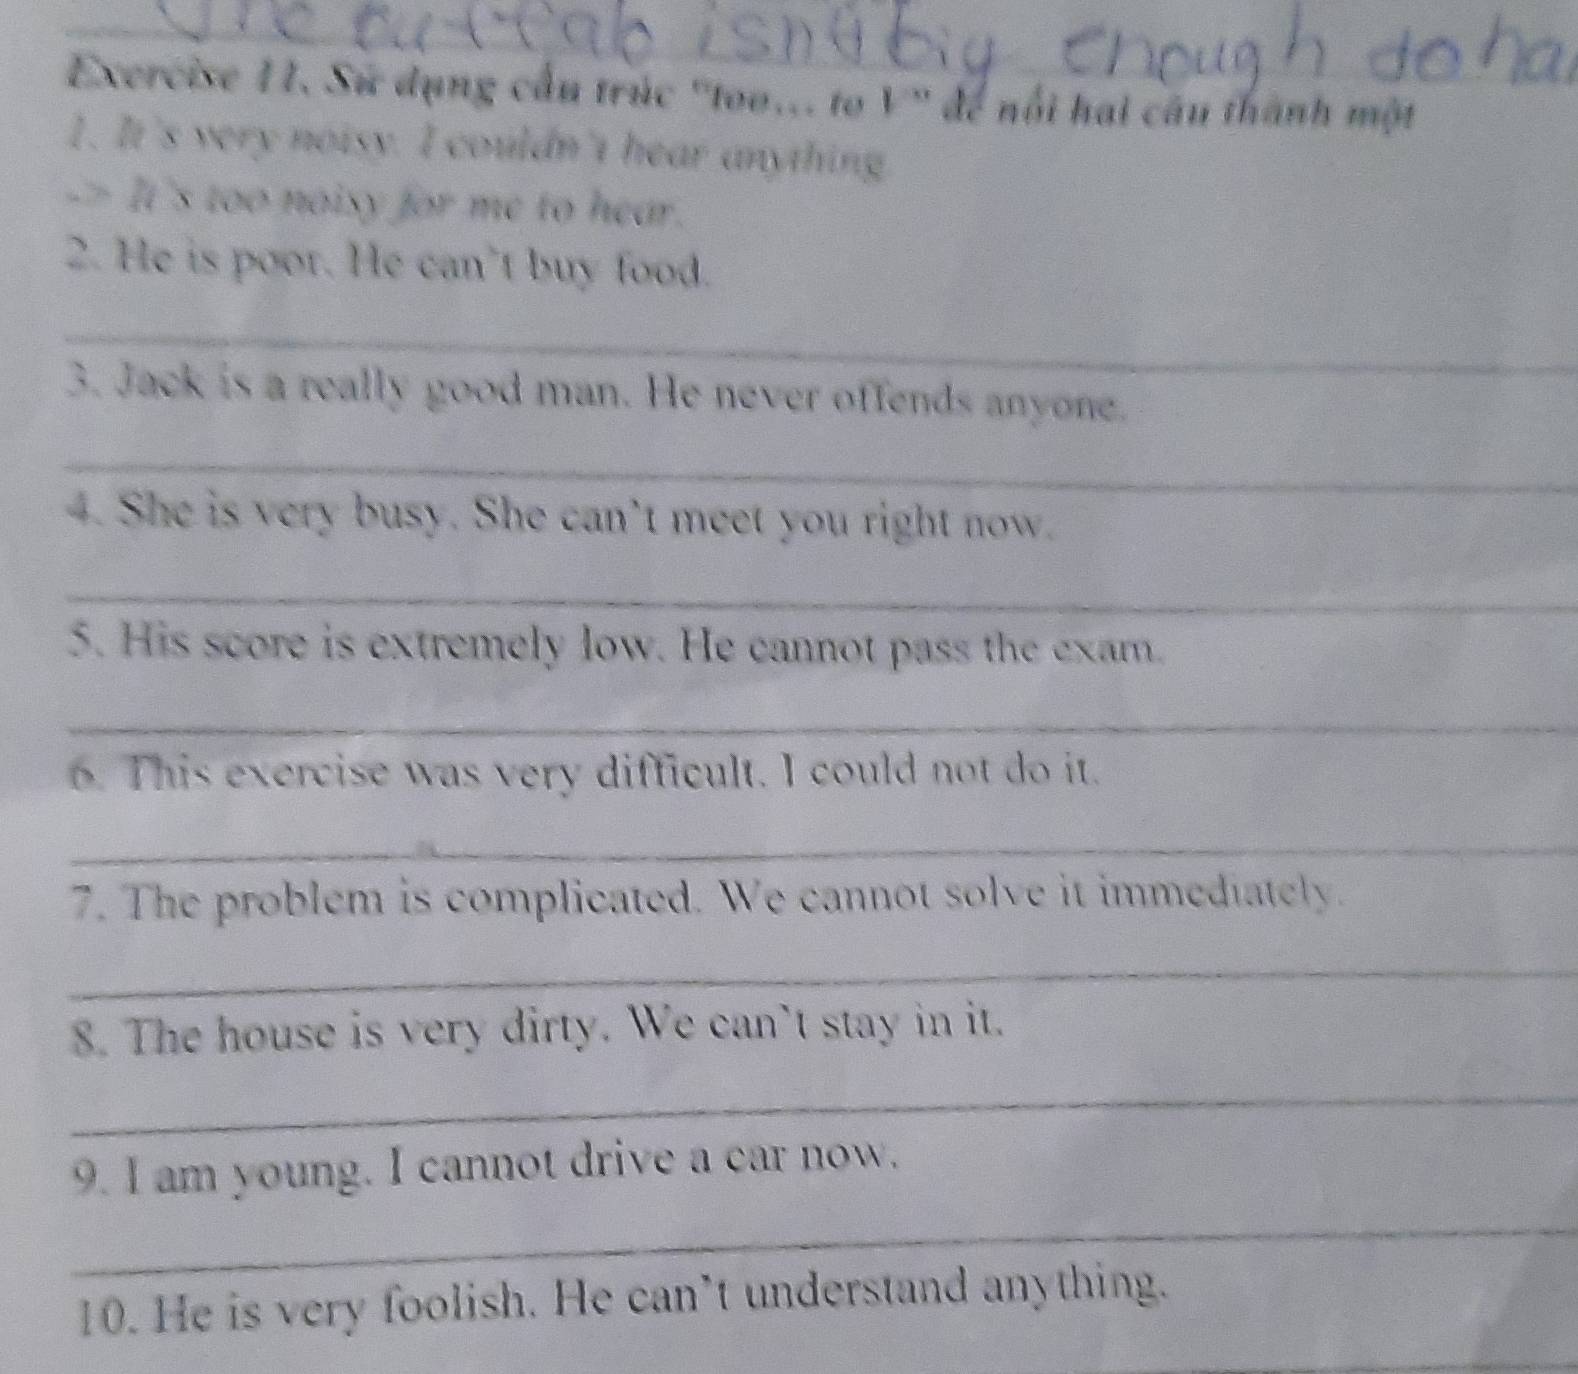 isn't big enough to ha
Exercise 11. Sử dụng cấu trúc "too... to V" để nối hai câu thành một
1. It's very noisy. I couldn't hear anything
-> It's too noisy for me to hear.
2. He is poor. He can't buy food.
3. Jack is a really good man. He never offends anyone.
4. She is very busy. She can't meet you right now.
5. His score is extremely low. He cannot pass the exam.
6. This exercise was very difficult. I could not do it.
7. The problem is complicated. We cannot solve it immediately.
8. The house is very dirty. We can't stay in it.
9. I am young. I cannot drive a car now.
10. He is very foolish. He can't understand anything.